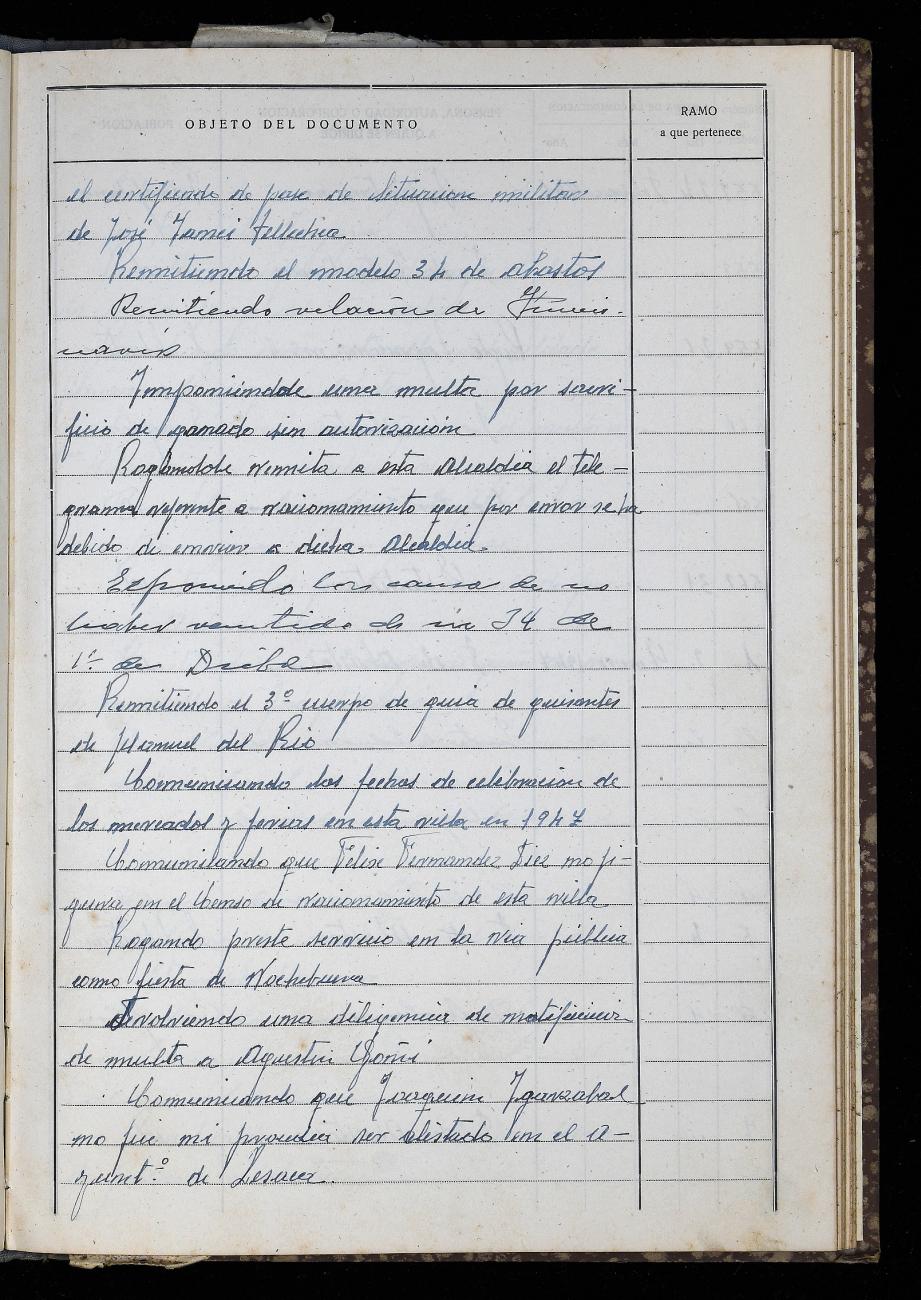 OBJETO DEL DOCUMENTO
RAMO
a que pertenece
el certificado de pase de situacion militar
de José Tellechea
Remitiendo el modelo 34 de abastos
Remitiendo relación de
Imponiéndole una multa por sacri-
ficio de ganado sin autorización
Rogándole remita a esta Alcaldia el tele-
grama referente a racionamiento que por error se ha
debido de enviar a dicha Alcaldia.
Exponiendo las causa de no
haber remitido el 34 de
1º de
Remitiendo el 3º cuerpo de guia de guisantes
de Manuel del Rio
Comunicando las fechas de celebracion de
los mercados y ferias en esta villa en 1947
Comunicando que Felix Fernandez Diez no fi-
gura en el Censo de racionamiento de esta villa
Rogando preste servicio en la via publica
como fiesta de Nochebuena
Devolviendo una diligencia de notificacion
de multa a Agustin Goñi
Comunicando que Joaquin Igarzabal
no fue ni procedia ser alistado en el A-
yunt.º de Lesaca.